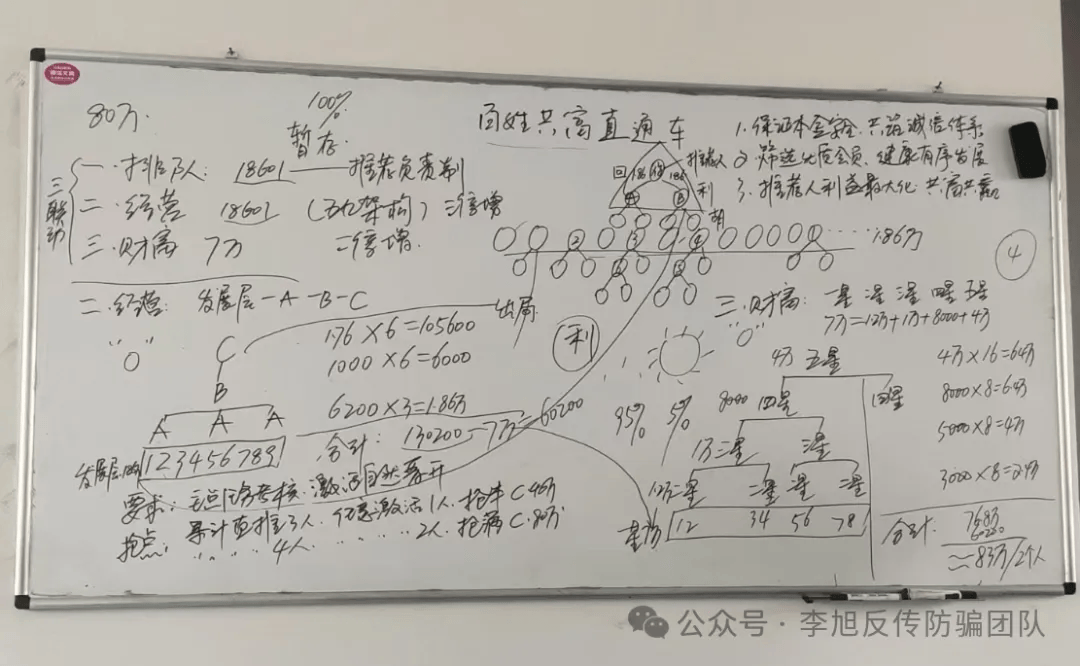 80万
100%
暂存
百姓共富直通车
三联动
一·排队: 18601——推荐负责制
二·经营 18601 (五化架构) 三倍增
三·财富 7万 二倍增
1. 保证本金安全、共筑诚信体系
2 筛选优质会员、健康有序发展
3. 推荐人利益最大化 共富共赢
推荐人
回
利
2
3
4
……1.86万
④
二·经营: 发展层-A-B-C
"0"
出局
C
B
A A A
发展层
1 2 3 4 5 6 7 8 9
176×6=105600
1000×6=6000
6200×3=1.86万
合计: 130200-7万=60200
利
要求:
激活自然
抢点: 累计直推3人、任意激活1人、抢
4人、……2人、抢满C·80万
三·财富: 一星 二星 三星 四星 五星
"0"
7万=12万+1万+8000+4万
95% 5%
4万 五星
8000 四星 四星
1万三星 三星
二星 二星 二星 二星
12 34 56 78
4万×16=64万
8000×8=6.4万
5000×8=4万
3000×8=2.4万
合计: 76.8万
60200
≈83万/2个人
公众号·李旭反传防骗团队